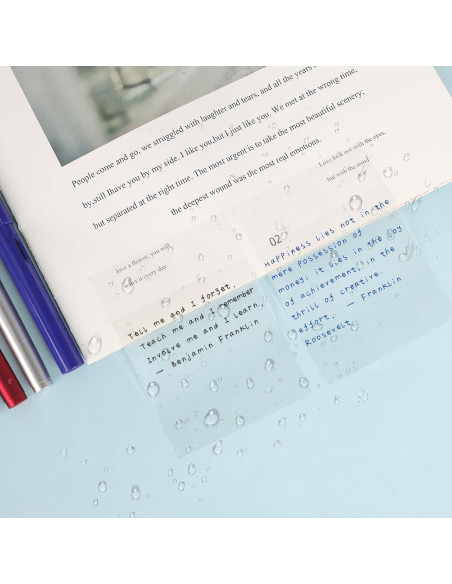 People come and go, we struggled with laughter and tears, and all the years
by,still Ihave you by my side. I like you,but I just like you. We met at the wrong time,
but separated at the right time. The most urgent is to take the most beautiful scenery;
the deepest wound was the most real emotions.
Love look not with the eyes,
but with the mind
love a flower, you will
it every day.
02
Happiness lies not in the
mere possession of
money. it lies in the joy
of achievement, in the
thrill of creative
effort. — Franklin
Roosevelt
Tell me and I forget.
Teach me and I remember
Involve me and I learn.
— Benjamin Franklin